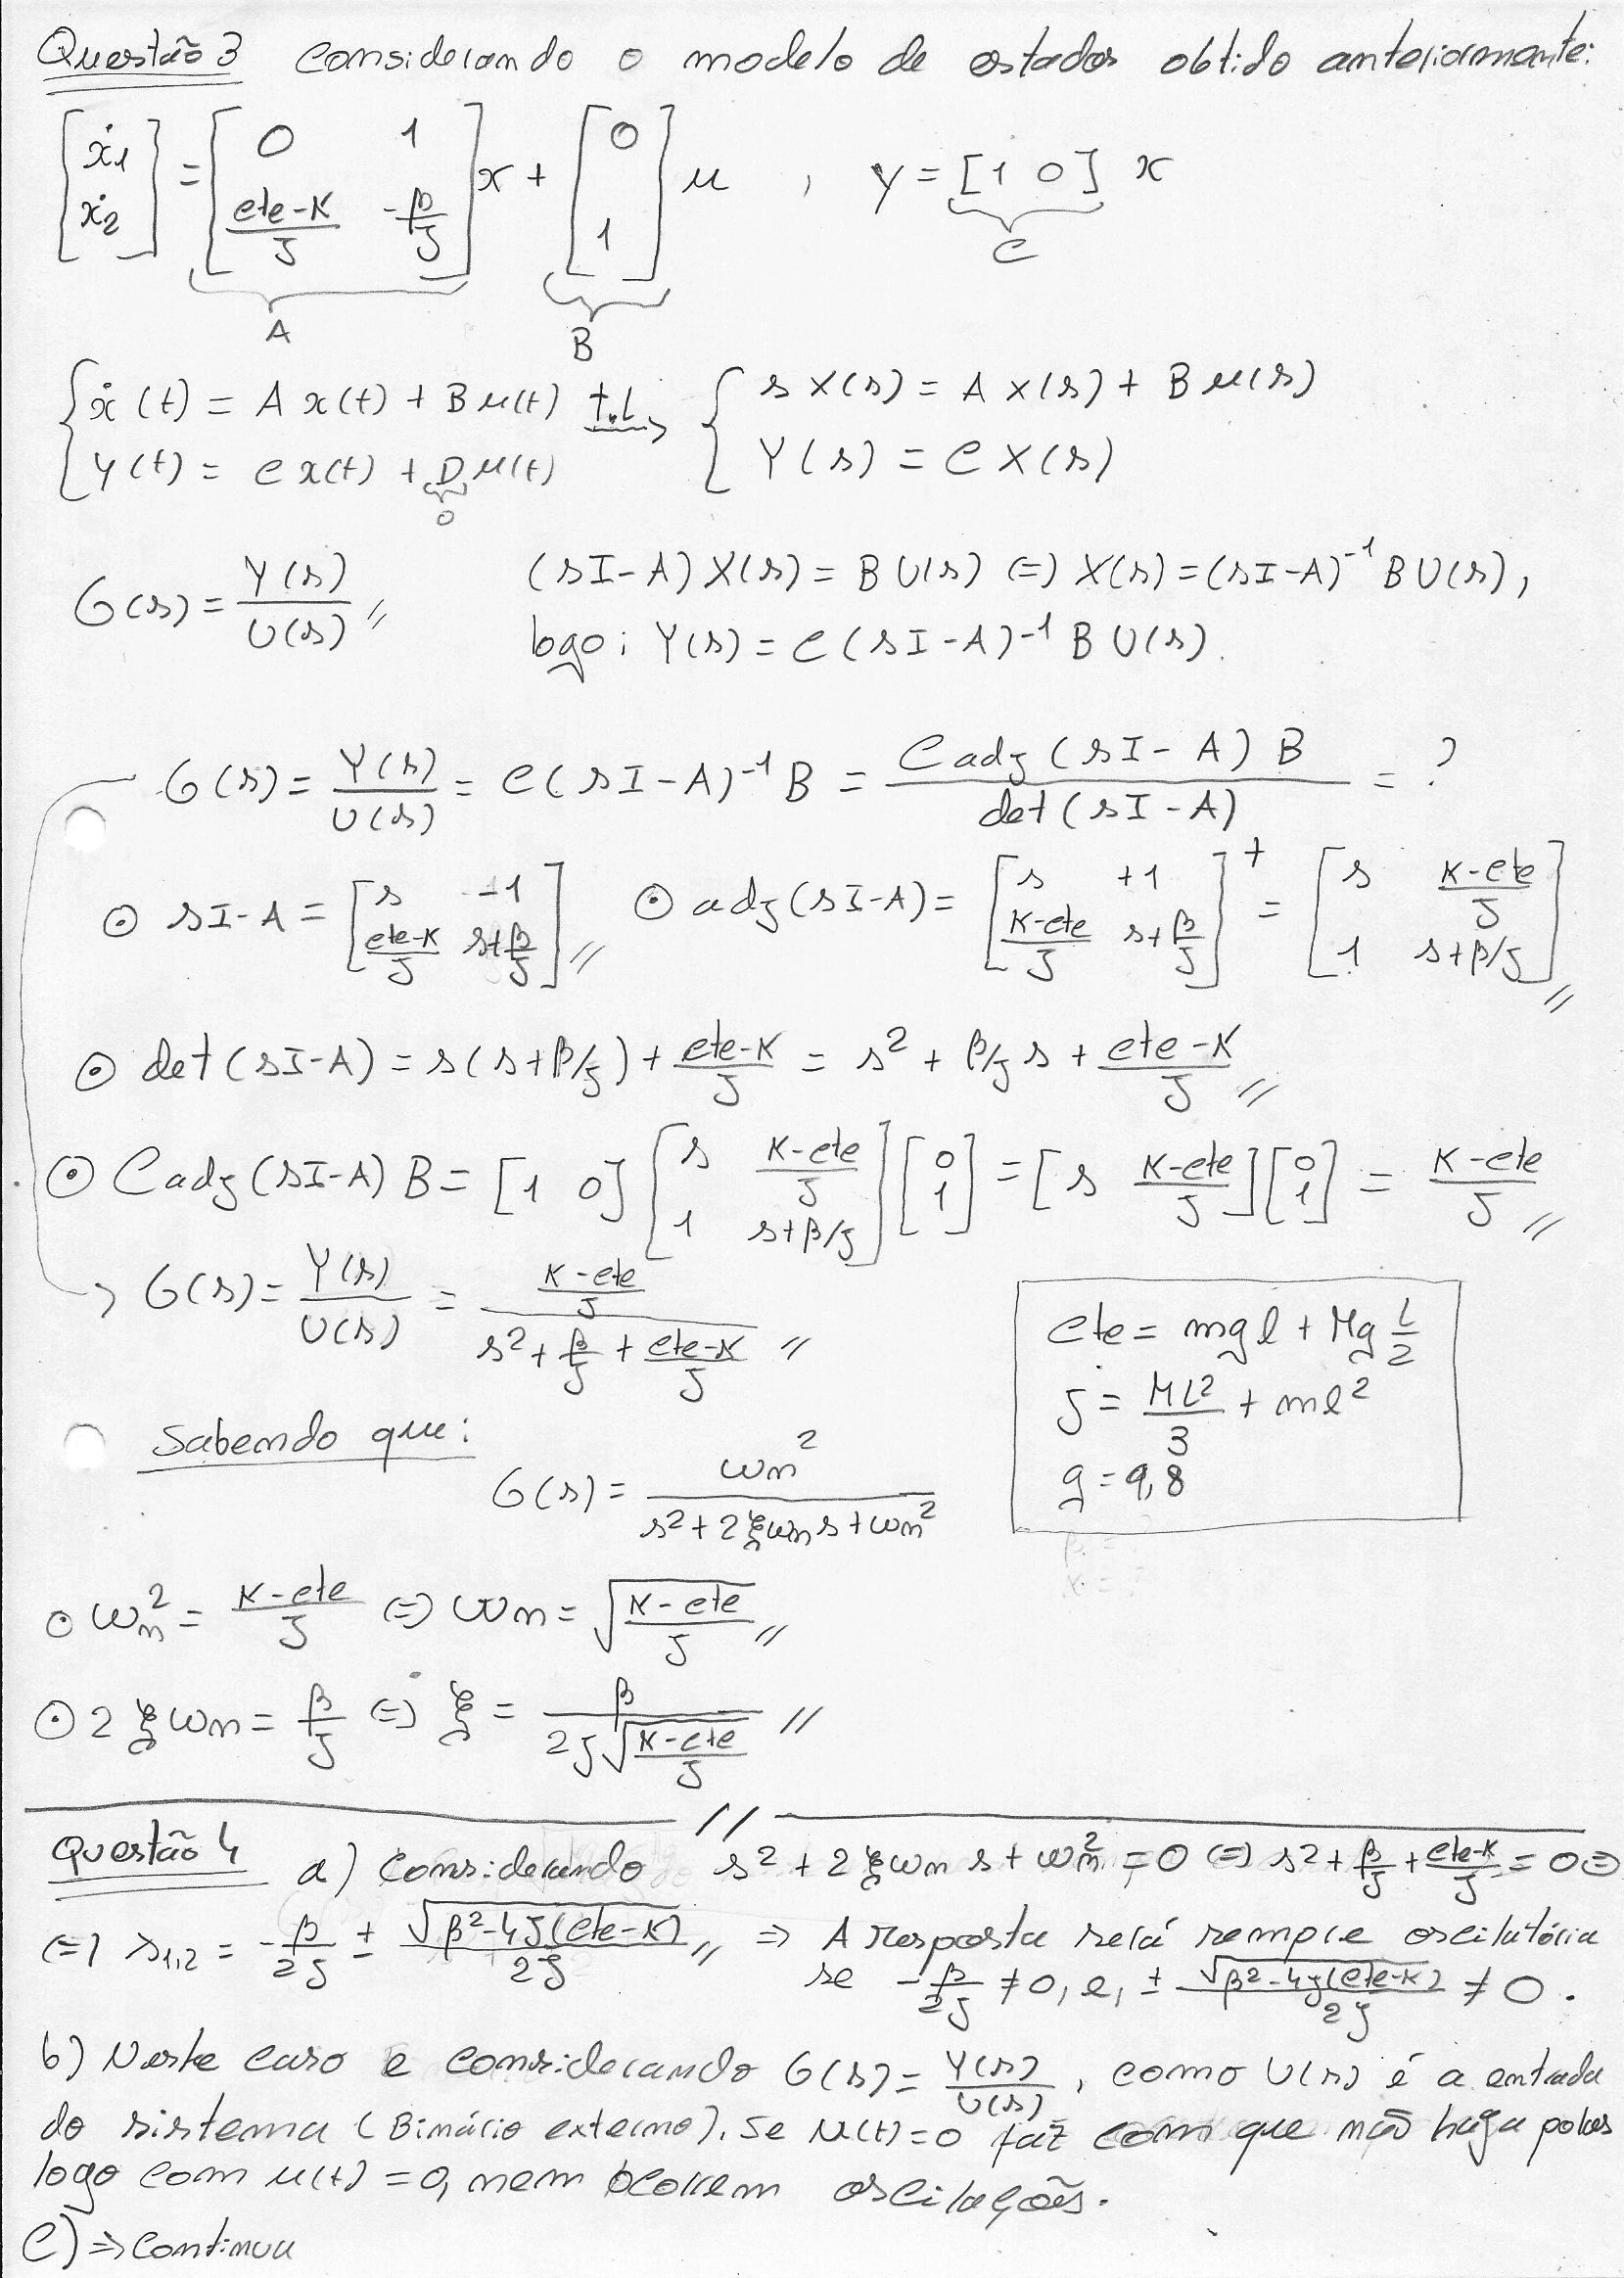 Questão 3 Considerando o modelo de estados obtido anteriormente:
[ẋ1; ẋ2] = [0 1; cte-K/J -β/J] x + [0; 1] u , y = [1 0] x
A B C
{ẋ(t) = A x(t) + B u(t) t.L→ { s X(s) = A X(s) + B u(s)
{y(t) = C x(t) + D u(t) { Y(s) = C X(s)
0
G(s) = Y(s)/U(s) // (sI-A) X(s) = B U(s) (=) X(s) = (sI-A)^-1 B U(s),
logo: Y(s) = C (sI-A)^-1 B U(s).
G(s) = Y(s)/U(s) = C (sI-A)^-1 B = C adj (sI-A) B / det (sI-A) = ?
⊙ sI-A = [s -1; cte-K/J s+β/J] // ⊙ adj(sI-A) = [s +1; K-cte/J s+β/J]^t = [s K-cte/J; 1 s+β/J] //
⊙ det (sI-A) = s(s+β/J) + cte-K/J = s² + β/J s + cte-K/J //
⊙ C adj (sI-A) B = [1 0] [s K-cte/J; 1 s+β/J] [0; 1] = [s K-cte/J] [0; 1] = K-cte/J //
→ G(s) = Y(s)/U(s) = (K-cte/J) / (s² + β/J + cte-K/J) //
cte = mgl + Mg L/2
J = ML²/3 + ml²
g = 9,8
Sabendo que:
G(s) = ωn² / (s² + 2ξωn s + ωn²)
⊙ ωn² = K-cte/J (=) ωn = √(K-cte/J) //
⊙ 2ξωn = β/J (=) ξ = β / (2J√(K-cte/J)) //
//
Questão 4 a) Considerando s² + 2ξωn s + ωn² = 0 (=) s² + β/J + cte-K/J = 0 (=)
(=) s1,2 = -β/2J ± √(β²-4J(cte-K))/2J // ⇒ A resposta será sempre oscilatória
se -β/2J ≠ 0, e, ± √(β²-4J(cte-K))/2J ≠ 0.
b) Neste caso e considerando G(s) = Y(s)/U(s), como U(s) é a entrada
do sistema (Binário externo). Se u(t) = 0 faz com que não haja polos
logo com u(t) = 0, nem ocorrem oscilações.
C) ⇒ continua